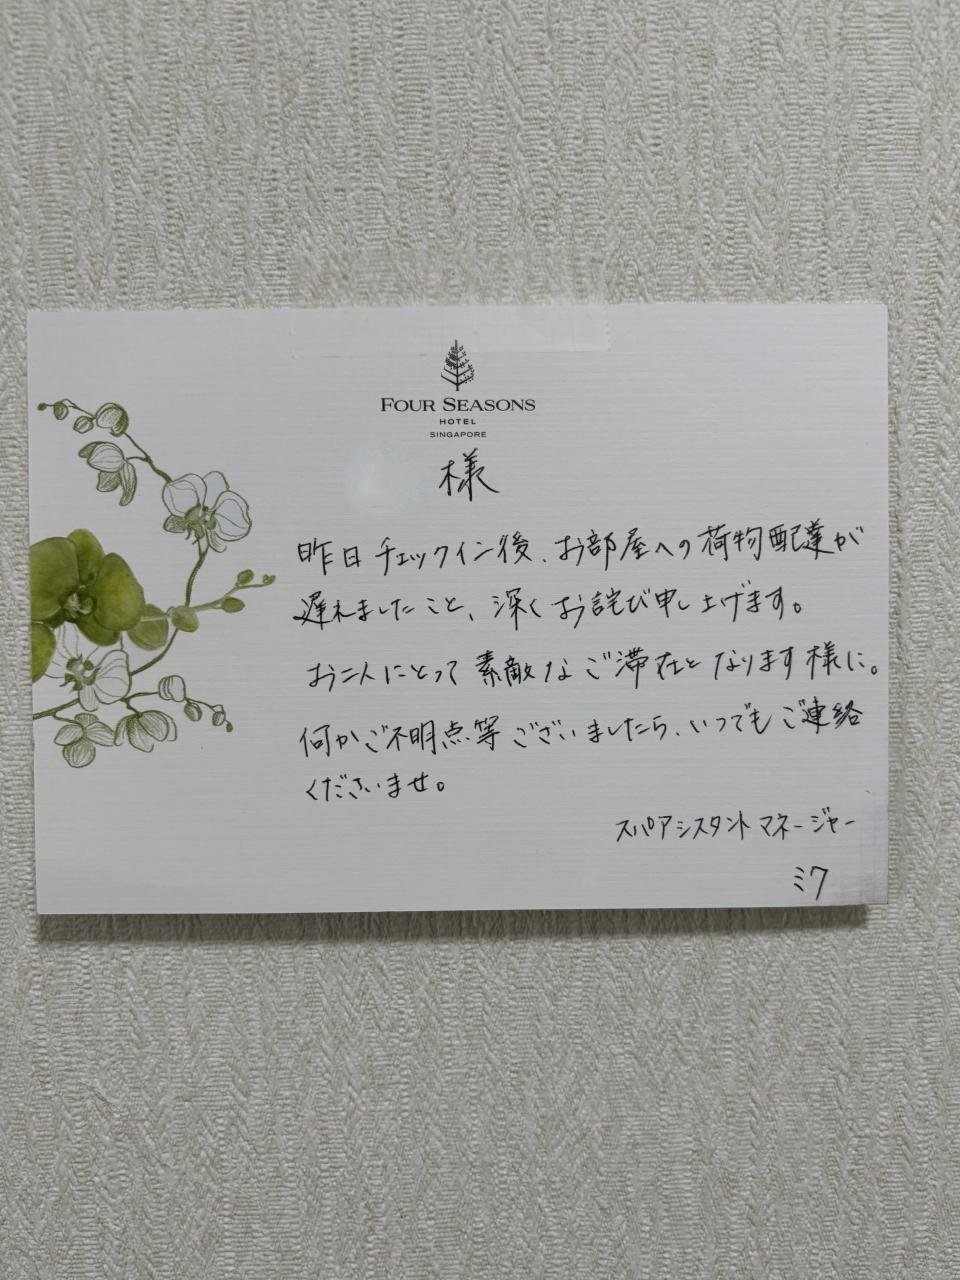 FOUR SEASONS
HOTEL
SINGAPORE
様
昨日チェックイン後、お部屋への荷物配達が
遅れましたこと、深くお詫び申し上げます。
お二人にとって素敵なご滞在となります様に。
何かご不明点等ございましたら、いつでもご連絡
くださいませ。
スパアシスタントマネージャー
ミワ